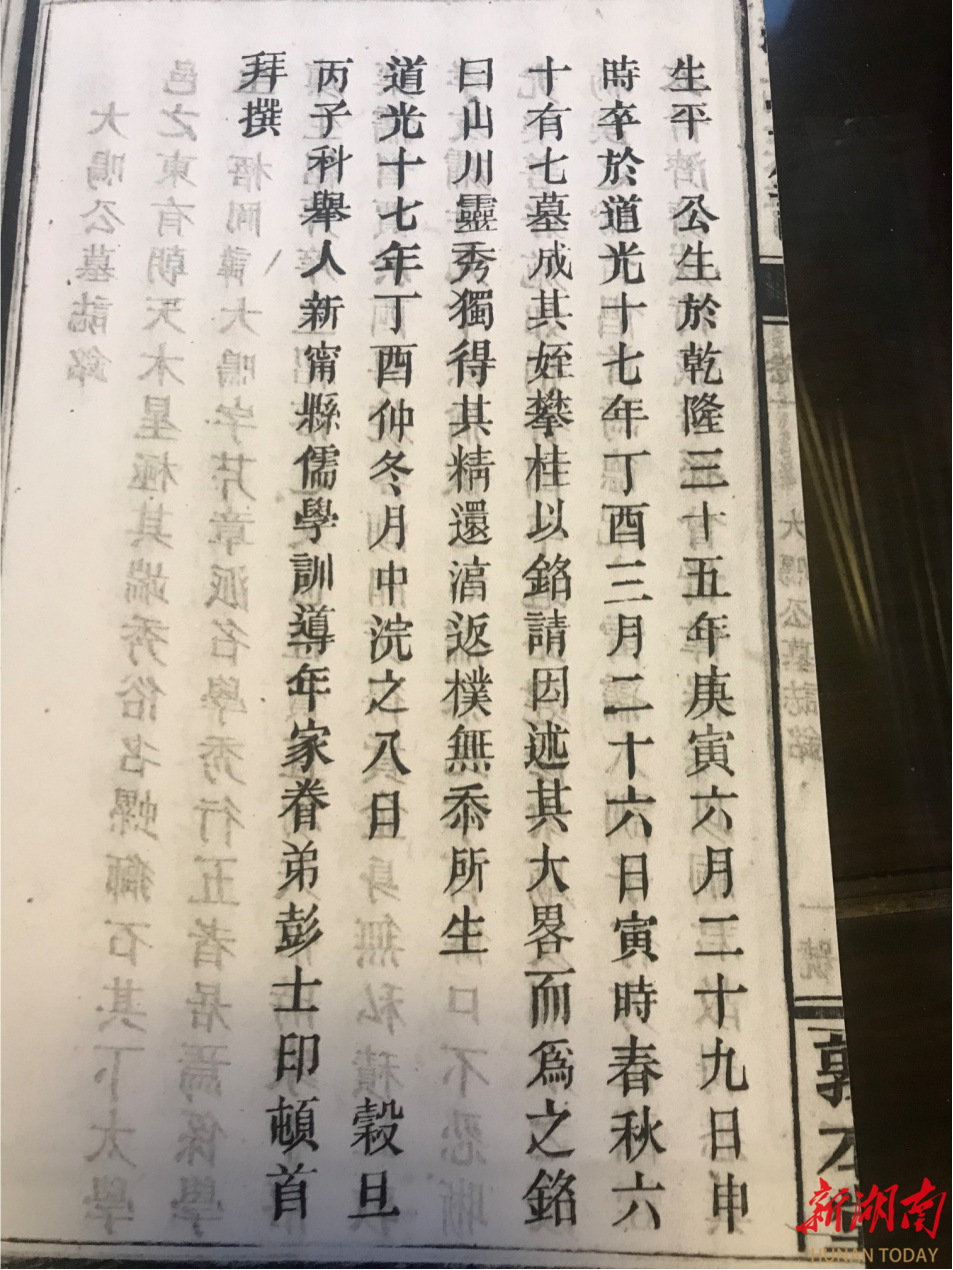 生平 公生於乾隆三十五年庚寅六月二十九日申
時卒於道光十七年丁酉三月二十六日寅時春秋六
十有七墓成其姪攀桂以銘請因述其大畧而爲之銘
曰山川靈秀獨得其精還湻返樸無忝所生
道光十七年丁酉仲冬月中浣之八日 穀旦
丙子科舉人新甯縣儒學訓導年家眷弟彭士印頓首
拜撰
大鳴公墓誌銘
一號
新湖南
HUNAN TODAY